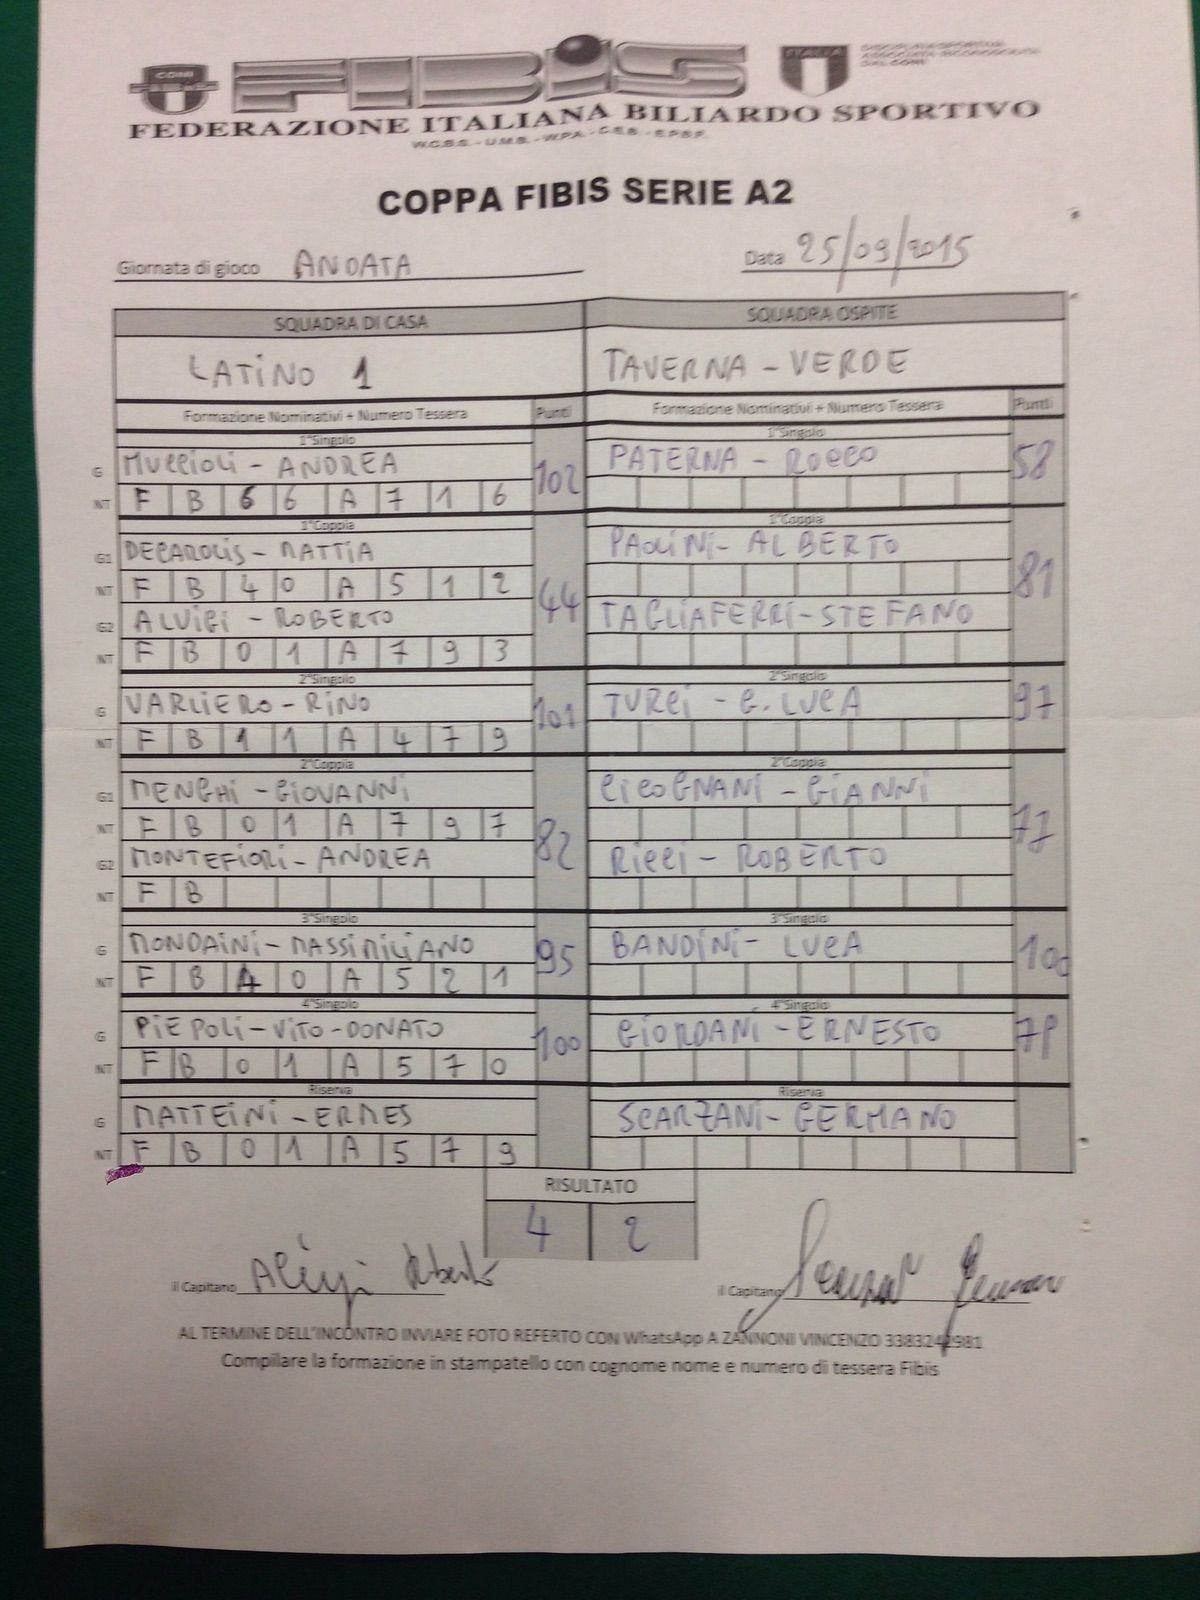 CONI
FIBiS
ITALIA
DISCIPLINA SPORTIVA
ASSOCIATA RICONOSCIUTA
DAL CONI
FEDERAZIONE ITALIANA BILIARDO SPORTIVO
W.C.B.S. - U.M.B. - W.P.A. - C.E.B. - E.P.B.F.
COPPA FIBIS SERIE A2
Giornata di gioco ANDATA Data 25/09/2015
SQUADRA DI CASA SQUADRA OSPITE
LATiNO 1 TAVERNA - VERDE
Formazione Nominativi + Numero Tessera Punti Formazione Nominativi + Numero Tessera Punti
1°Singolo 1°Singolo
G MUCCIOLI - ANDREA 102 PATERNA - ROCCO 58
NT F B 6 6 A 7 1 6
1°Coppia 1°Coppia
G1 DECAROLIS - MATTIA PAOLiNi - ALBERTO
NT F B 4 0 A 5 1 2 44 81
G2 ALUIGI - ROBERTO TAGLiAFERRi - STEFANO
NT F B 0 1 A 7 9 3
2°Singolo 2°Singolo
G VARLIERO - RiNO 101 TURCi - G. LUCA 97
NT F B 1 1 A 4 7 9
2°Coppia 2°Coppia
G1 MENGHi - GIOVANNi CICOGNANi - GiANNi
NT F B 0 1 A 7 9 7 82 77
G2 MONTEFIORi - ANDREA RiCCi - ROBERTO
NT F B
3°Singolo 3°Singolo
G MONDAiNi - MASSiMiLiANO 95 BANDiNi - LUCA 100
NT F B 4 0 A 5 2 1
4°Singolo 4°Singolo
G PiEPOLi - ViTO - DONATO 100 GiORDANi - ERNESTO
NT F B 0 1 A 5 7 0
Riserva Riserva
G MATTEiNi - ERMES SCARZANi - GERMANO
NT F B 0 1 A 5 7 9
RISULTATO
4 2
il Capitano Aluigi Roberto il Capitano
AL TERMINE DELL'INCONTRO INVIARE FOTO REFERTO CON WhatsApp A ZANNONI VINCENZO 3383242981
Compilare la formazione in stampatello con cognome nome e numero di tessera Fibis